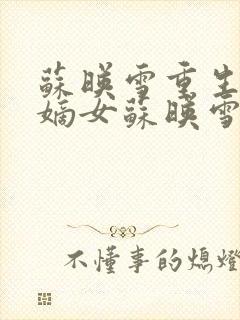 蘇暎雪重生
嫡女蘇暎雪
不懂事的熄燈